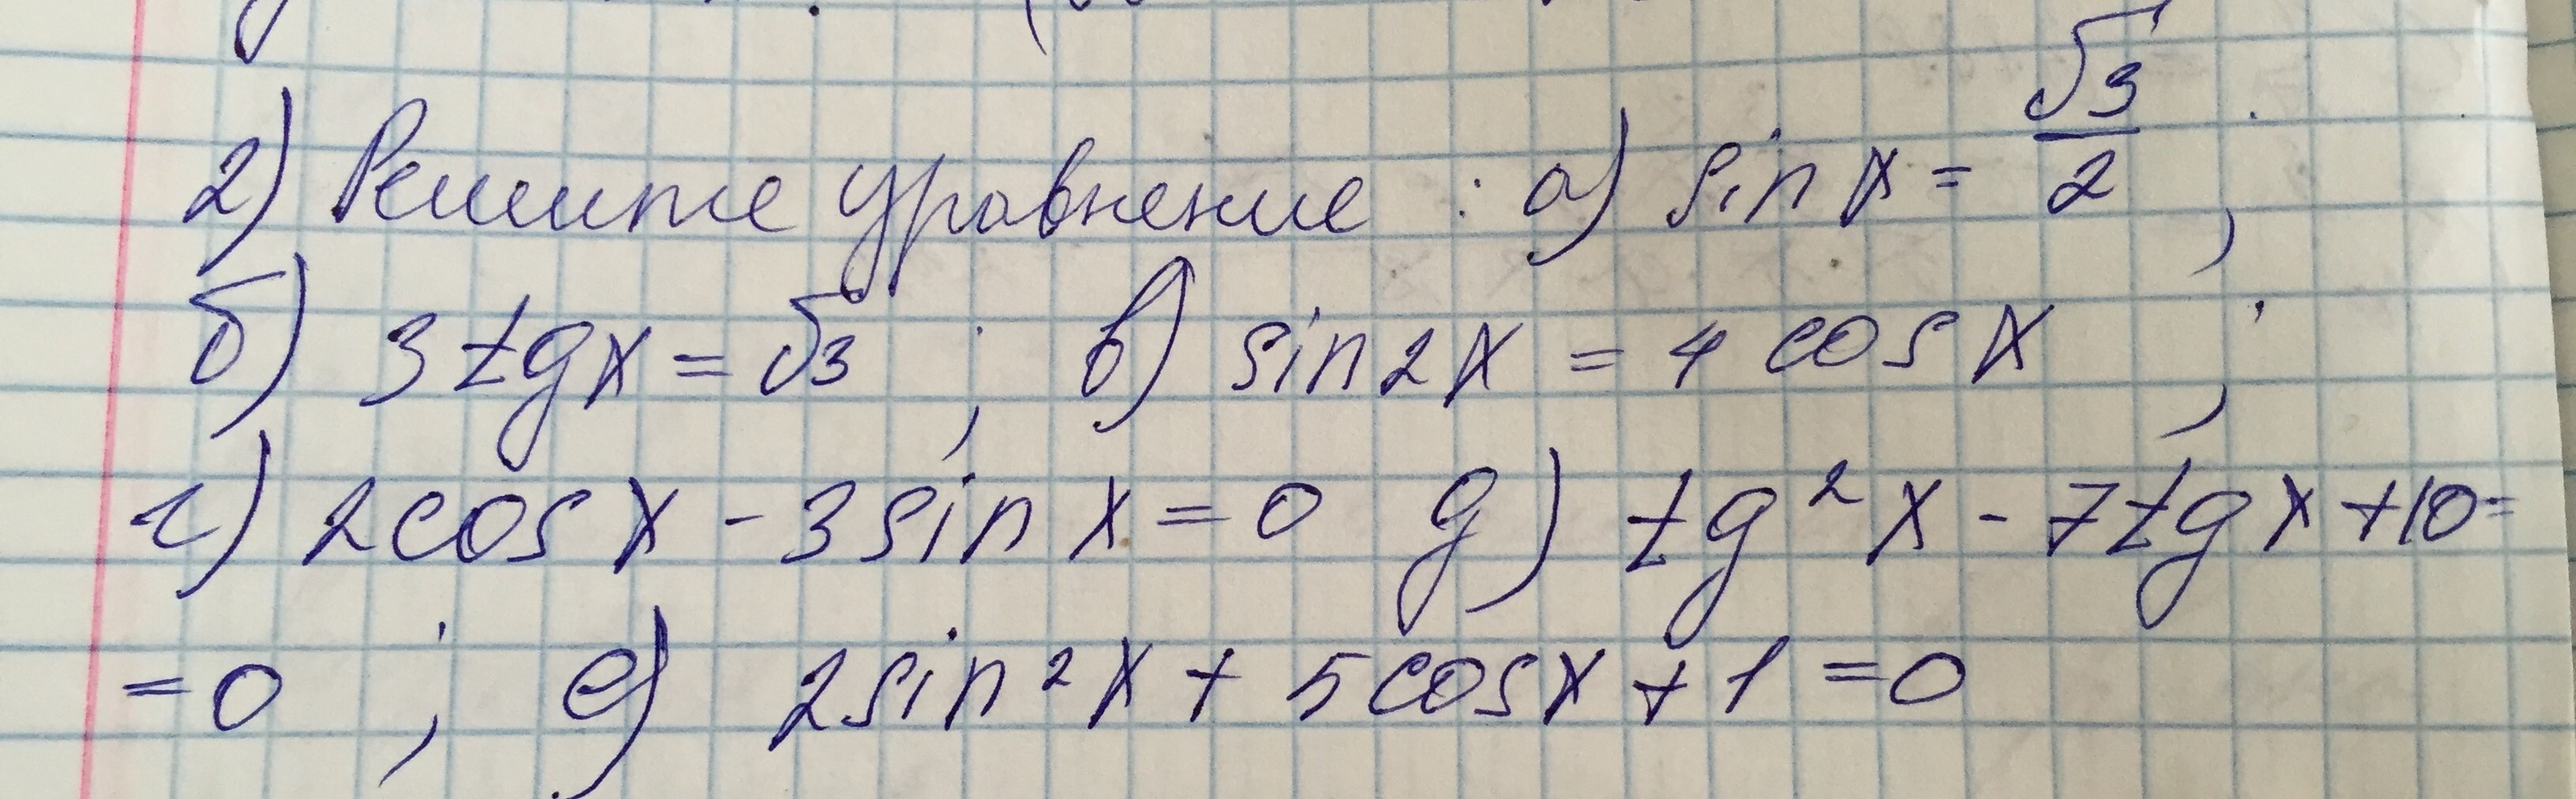 2) Решите уравнение : а) sin x = √3/2 ;
б) 3 tg x = √3 ; в) sin 2x = 4 cos x ;
г) 2 cos x - 3 sin x = 0 д) tg² x - 7 tg x + 10 =
= 0 ; е) 2 sin² x + 5 cos x + 1 = 0